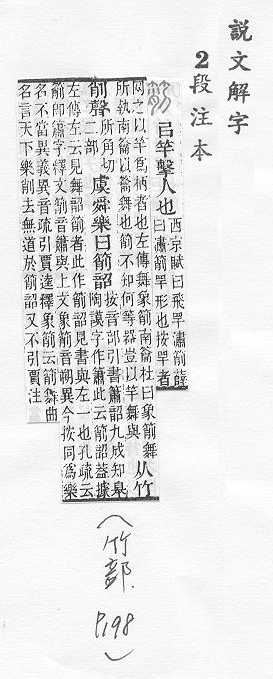 說文解字
2段注本
箾 㠯竿擊人也
西京賦曰飛罕潚箾薛
曰潚箾罕形也按罕者
网之以竿爲柄者也左傳舞象箾南籥杜曰象箾舞
所執南籥以籥舞也箾不知何等器豈以竿舞與
从竹
削聲
所角切
二部
虞舜樂曰箾韶
按音部引書簫韶九成知臯
陶謨字作簫此云箾葢據
左傳左云見舞韶箾者此作箾韶見書與左一也孔疏云
箾卽簫字釋文箾音簫與上文象箾音朔異今按同爲樂
名不當異義異音疏引賈逵釋象箾云箾舞曲
名言天下樂削去無道於箾韶又不引賈注
(竹部.
P198
)